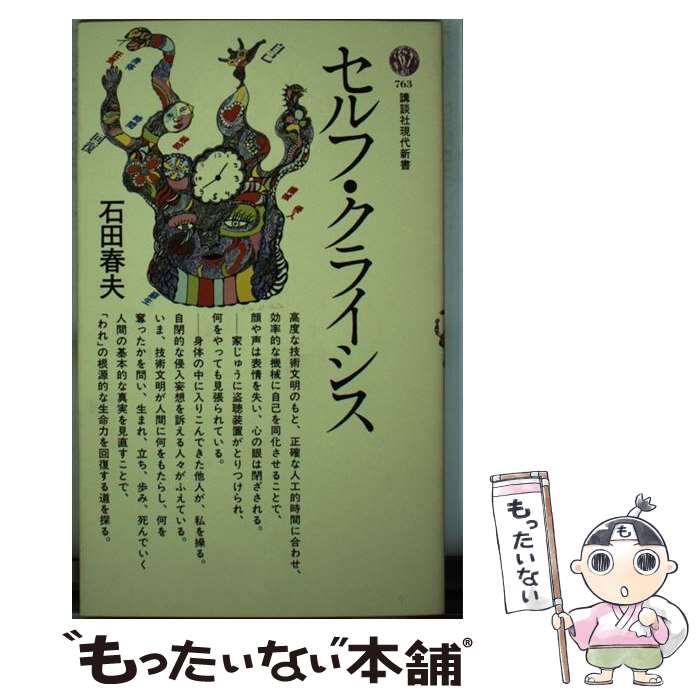 763
講談社現代新書
セルフ・クライシス
石田春夫
自己
回復
高度な技術文明のもと、正確な人工的時間に合わせ、
効率的な機械に自己を同化させることで、
顔や声は表情を失い、心の眼は閉ざされる。
――家じゅうに盗聴装置がとりつけられ、
何をやっても見張られている。
――身体の中に入りこんできた他人が、私を操る。
自閉的な侵入妄想を訴える人々がふえている。
いま、技術文明が人間に何をもたらし、何を
奪ったかを問い、生まれ、立ち、歩み、死んでいく
人間の基本的な真実を見直すことで、
「われ」の根源的な生命力を回復する道を探る。
もったいない
も
"もったいない"本舗®